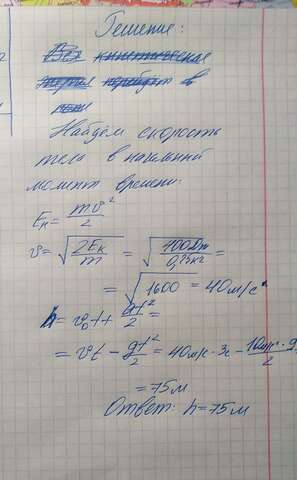 Решение:
Вся кинетическая
энергия перейдёт в
Найдём скорость
тела в начальный
момент времени:
Eк = mv²/2
v = √(2Eк/m) = √(400Дж/0,25кг) =
= √1600 = 40м/с
h = v₀t + gt²/2 =
= vt - gt²/2 = 40м/с · 3с - 10м/с² · 9/2
= 75м
Ответ: h = 75м